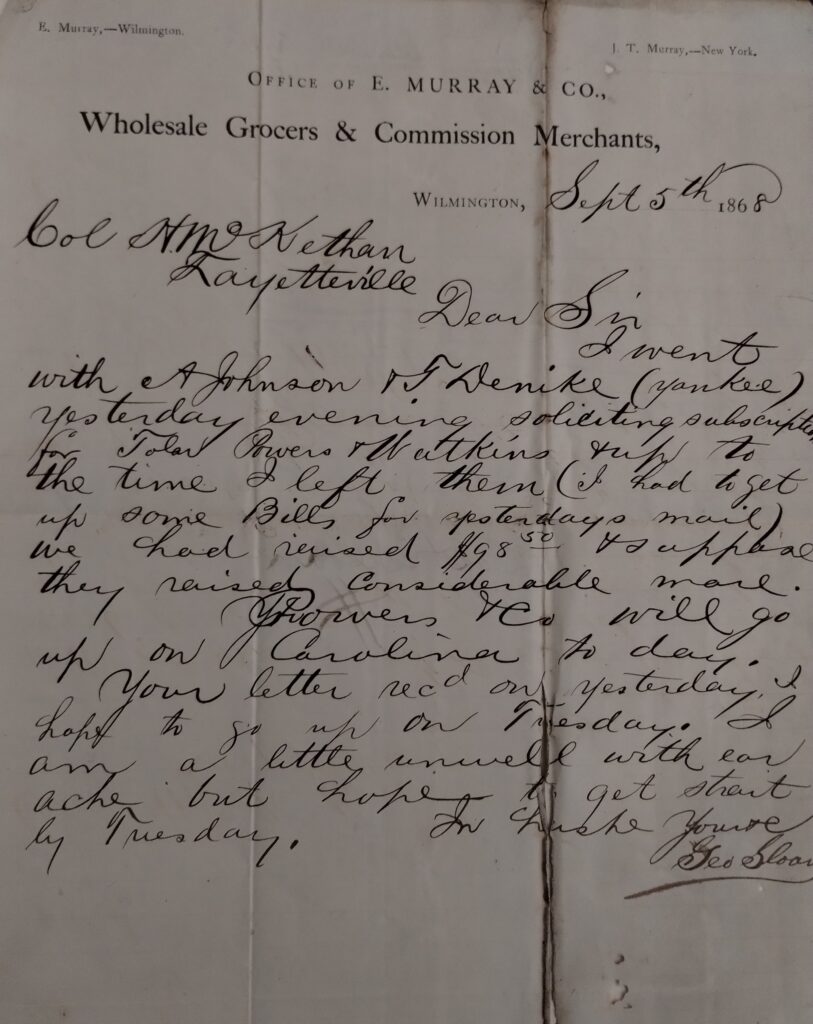 E. Murray,—Wilmington.
J. T. Murray,—New York.
OFFICE OF E. MURRAY & CO.,
Wholesale Grocers & Commission Merchants,
WILMINGTON, Sept 5th 1868
Col A McKethan
Fayetteville
Dear Sir
I went
with A Johnson & T Denike (yankee)
yesterday evening soliciting subscription
for Tolar Powers & Watkins & up to
the time I left them (I had to get
up some Bills for yesterdays mail)
we had raised $98 50 & suppose
they raised considerable more.
Powers & Co will go
up on Carolina to day.
Your letter recd on yesterday, I
hope to go up on Tuesday. I
am a little unwell with ear
ache but hope to get strait
by Tuesday. In haste Yours
Geo Sloan